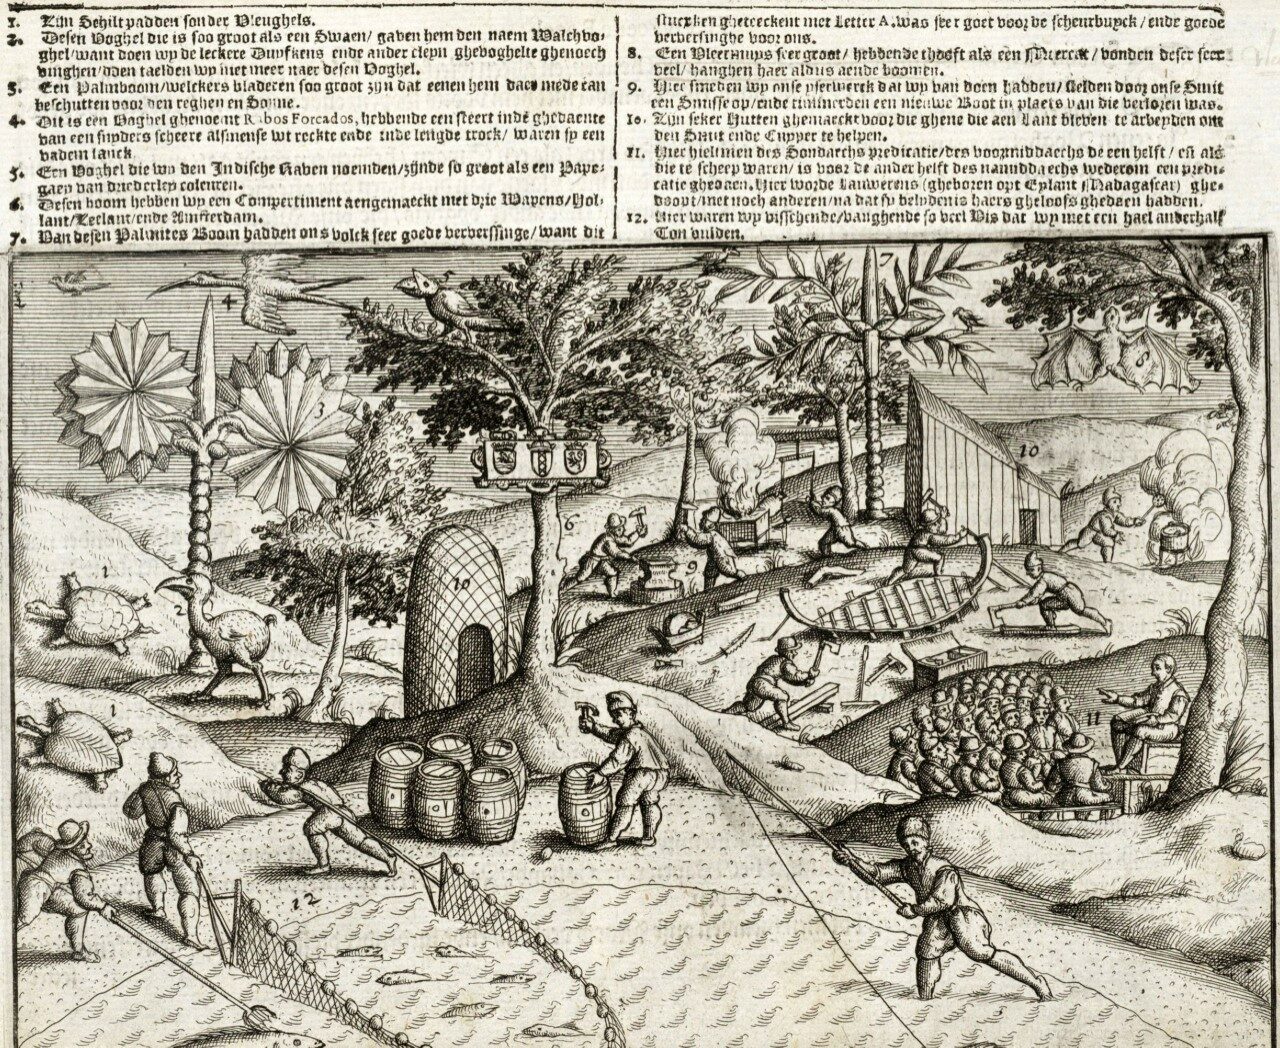 1. Zijn Schilt padden sonder Vleughels.
2. Desen Voghel die is soo groot als een Swaen/ gaven hem den naem Walchvo-
ghel/want doen wy de leckere Duyfkens ende ander cleyn ghevoghelte ghenoech
vinghen/doen taelden wy niet meer naer desen Voghel.
3. Een Palmboom/welckers bladeren soo groot zijn dat eenen hem daer mede can
beschutten voor den reghen en Sonne.
4. Dit is een Voghel ghenoemt Rabos Forcados, hebbende een steert inde ghedaente
van een snyders scheere alsmense wt reckt ende inde lengde trock/ waren sy een
vadem lanck.
5. Een Voghel die wy den Indische Raven noemden/zijnde so groot als een Pape-
gaey van drrederley coleuren.
6. Desen boom hebben wy een Compertiment aengemaeckt met drie Wapens/Hol-
lant/Zeelant/ende Amsterdam.
7. Van desen Palmites Boom hadden ons volck seer goede ververssinge/want die
stucxken gheteeckent met Letter A.was seer goet voor de scheurbuyck/ende goede
ververssinghe voor ons.
8. Een Vleermuys seer groot/ hebbende thooft als een Meercat/ vonden deser seer
veel/ hanghen haer aldus aende boomen.
9. Hier smeden wy onse yserwerck dat wy van doen hadden/ stelden door onse Smit
een Smisse op/ende timmerden een nieuwe Boot in plaets van die verloren was.
10. Zijn seker Hutten ghemaeckt voor die ghene die aen Lant bleven te arbeyden om
den Smit ende Cuyper te helpen.
11. Hier hielt men des Sondaechs predicatie/des voormiddaechs de een helft / en als
die te scheep waren/ is voor de ander helft des namiddaechs wederom een predi-
catie ghedaen. Hier worde Lauwerens (gheboren opt Eylant Madagascar) ghe-
doopt/met noch anderen/na dat sy belydenis haers gheloofs ghedaen hadden.
12. Hier waren wy visschende/vanghende so veel Vis dat wy met een hael anderhalf
Ton vulden.
4
7
3
8
10
6
1
2
10
9
1
11
12